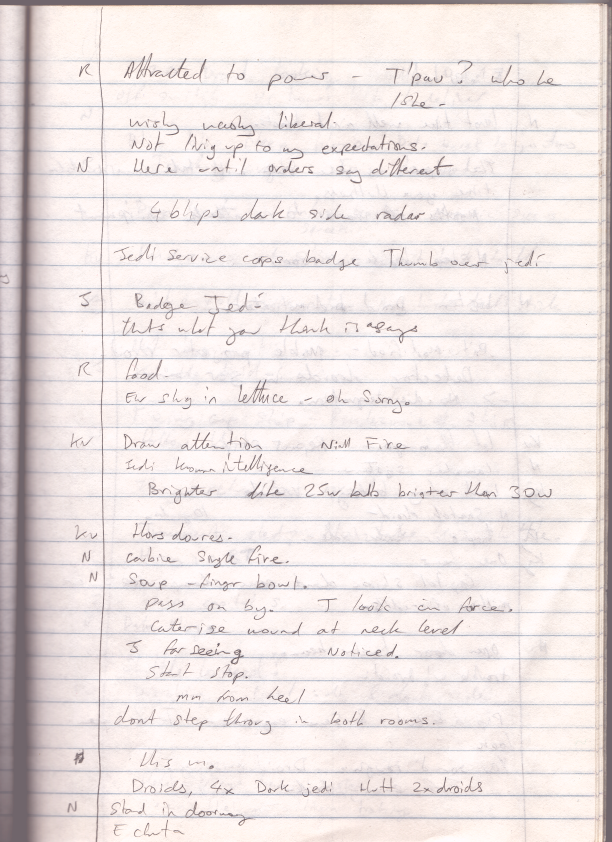 R Attracted to power - T'pau? who he
/she -
wishy washy liberal.
Not living up to my expectations.
N Here until orders say different
4 blips dark side radar
Jedi Service corps badge Thumb over jedi
J Badge Jedi
thats what you think is always
R food.
Ew slug in lettuce - oh Sorry.
Kv Draw attention Nill Fire
Jedi known intelligence
Brighter like 25w bulb brigter then 30w
Kv Hors doures.
N carbine single fire.
N Soup - finger bowl.
pass on by. T look in force.
Caterise wound at neck level
J farseeing Noticed.
Start stop.
mm from heel
dont step throug in both rooms.
this in.
Droids, 4x Dark jedi Hutt 2x droids
N Stad in doorway
E chuta